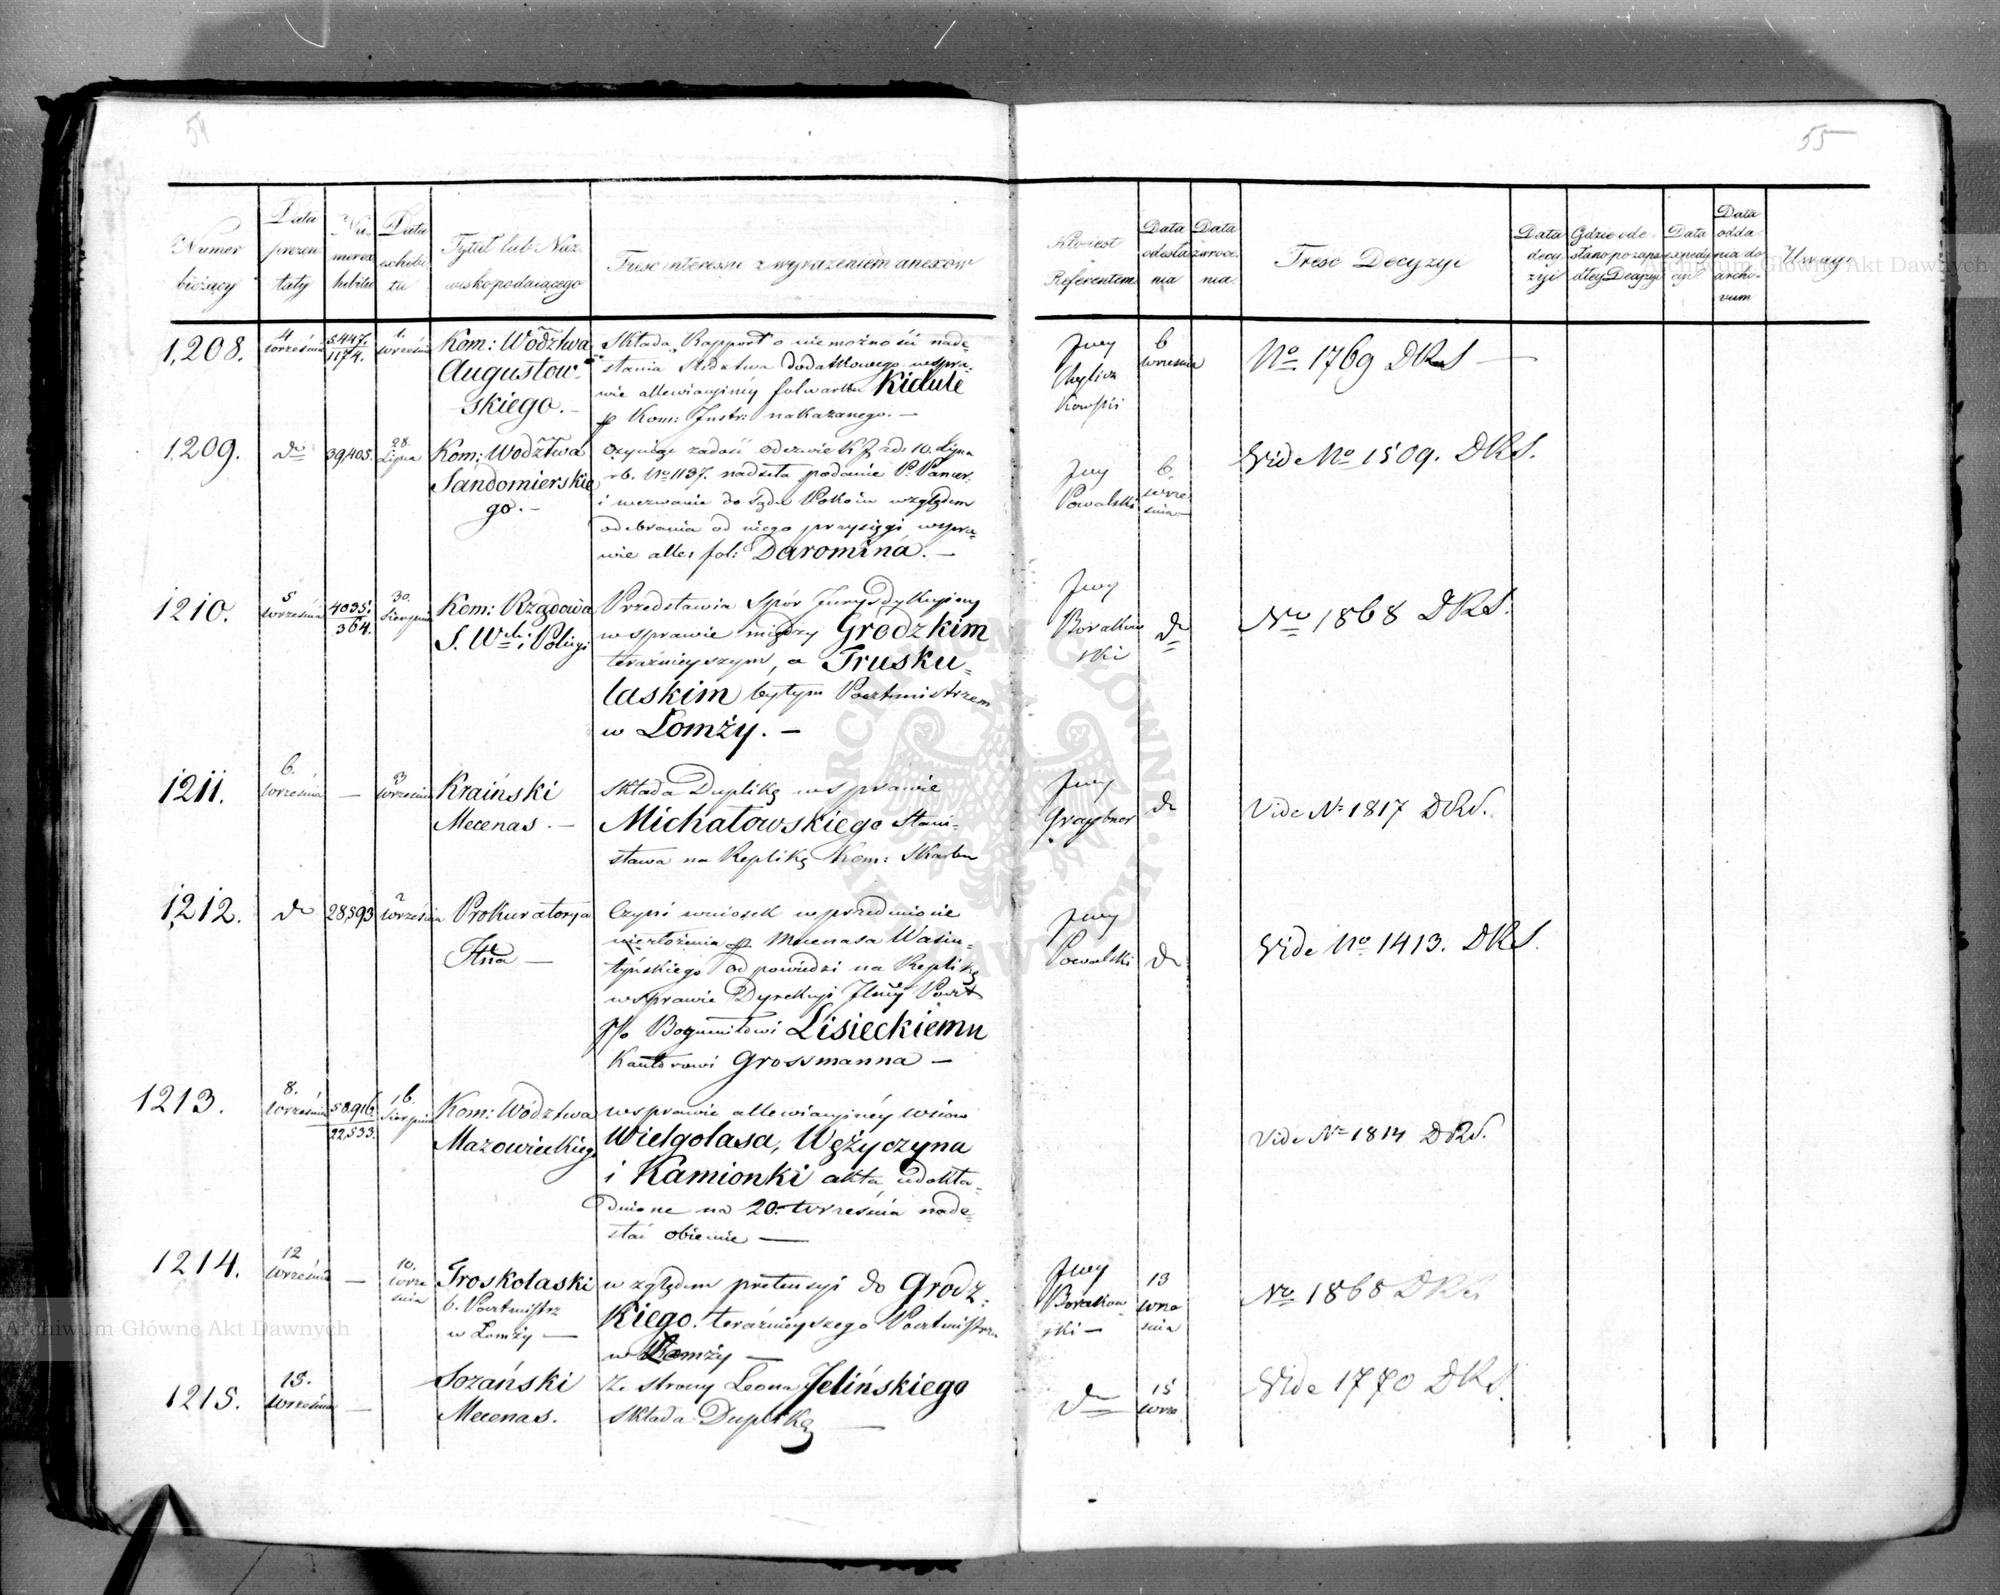 54
55
Numer bieżący
Data prezentaty
Numer exhibitu
Data exhibitu
Tytuł lub Nazwisko podaiącego
Treść interessu z wyrażeniem anexów
Kto iest Referentem
Data odesłania
Data zwrócenia
Treść Decyzyi
Data decyzyi
Data expedycyi
Data oddania do archivum
Uwagi
1,208. 4 września 5447./1174. 1. września Kom: Wodztwa Augustowskiego.
Składa Rapport o niemożności nade-
słania Sledztwa dodatkowego wspra-
wie allewiacyiney folwarku Kidule
p Kom: Instr: nakazanego. —
6 września
No 1769 DKS —
1,209. do 39,405. 28. Lipca Kom: Wodztwa Sandomierskiego. —
Czyniąc zadość odezwie K J zd: 10. Lipca
rb. No 1137. nadseła podanie P.
i wezwanie do Sądu Pokoiu względem
odebrania od niego przysięgi wspra-
wie alle: fol: Daromina. —
Powalski 6. września
Vide No 1509. DKS.
1210. 5 września 4035./364. 30. Sierpnia Kom: Rządowa S. W. i Policyi
Przedstawia Spór Jurysdykcyiny
w sprawie między Grodzkim
teraźnieyszym, a Trusko-
laskim byłym Pocztmistrzem
w Łomży. —
do
No 1868 DKS.
1211. 6. września — 3 września Kraiński Mecenas. —
Składa Duplikę w sprawie
Michałowskiego Stani-
sława na Replikę Kom: Skarbu
Graybner do
Vide No 1817 DKS.
1,212. do 28,593 2 września Prokuratorya
Czyni wniosek w przedmiocie
niezłożenia p. Mecenasa Wasiu-
tyńskiego odpowiedzi na Replikę
w sprawie Dyrekcyi Poczt
p/o Bogumiłowi Lisieckiemu
Kantorowi Grossmanna —
Powalski do
Vide No 1413. DKS.
1213. 8. września 50,916./22,533. 16. Sierpnia Kom: Wodztwa Mazowieckiego
w sprawie allewiacyiney wsiow
Wielgolasa, Wężyczyna
i Kamionki akta udokła-
dnione na 20. września nade-
słać obiecuie —
Vide No 1814 DKS.
1214. 12 września — 10. września Troskolaski b. Pocztmistrz w Łomży —
względem pretensyi do Grodz-
kiego. teraźnieyszego Pocztmistrza
w Łomży —
13 września
No 1868 DKS
1215. 15. września — Sozański Mecenas.
Ze strony Leona Jelińskiego
składa Duplikę —
do 15 wrze
Vide 1770 DKS.
Archiwum Główne Akt Dawnych
Archiwum Główne Akt Dawnych
ARCHIWUM GŁÓWNE AKT DAWNYCH